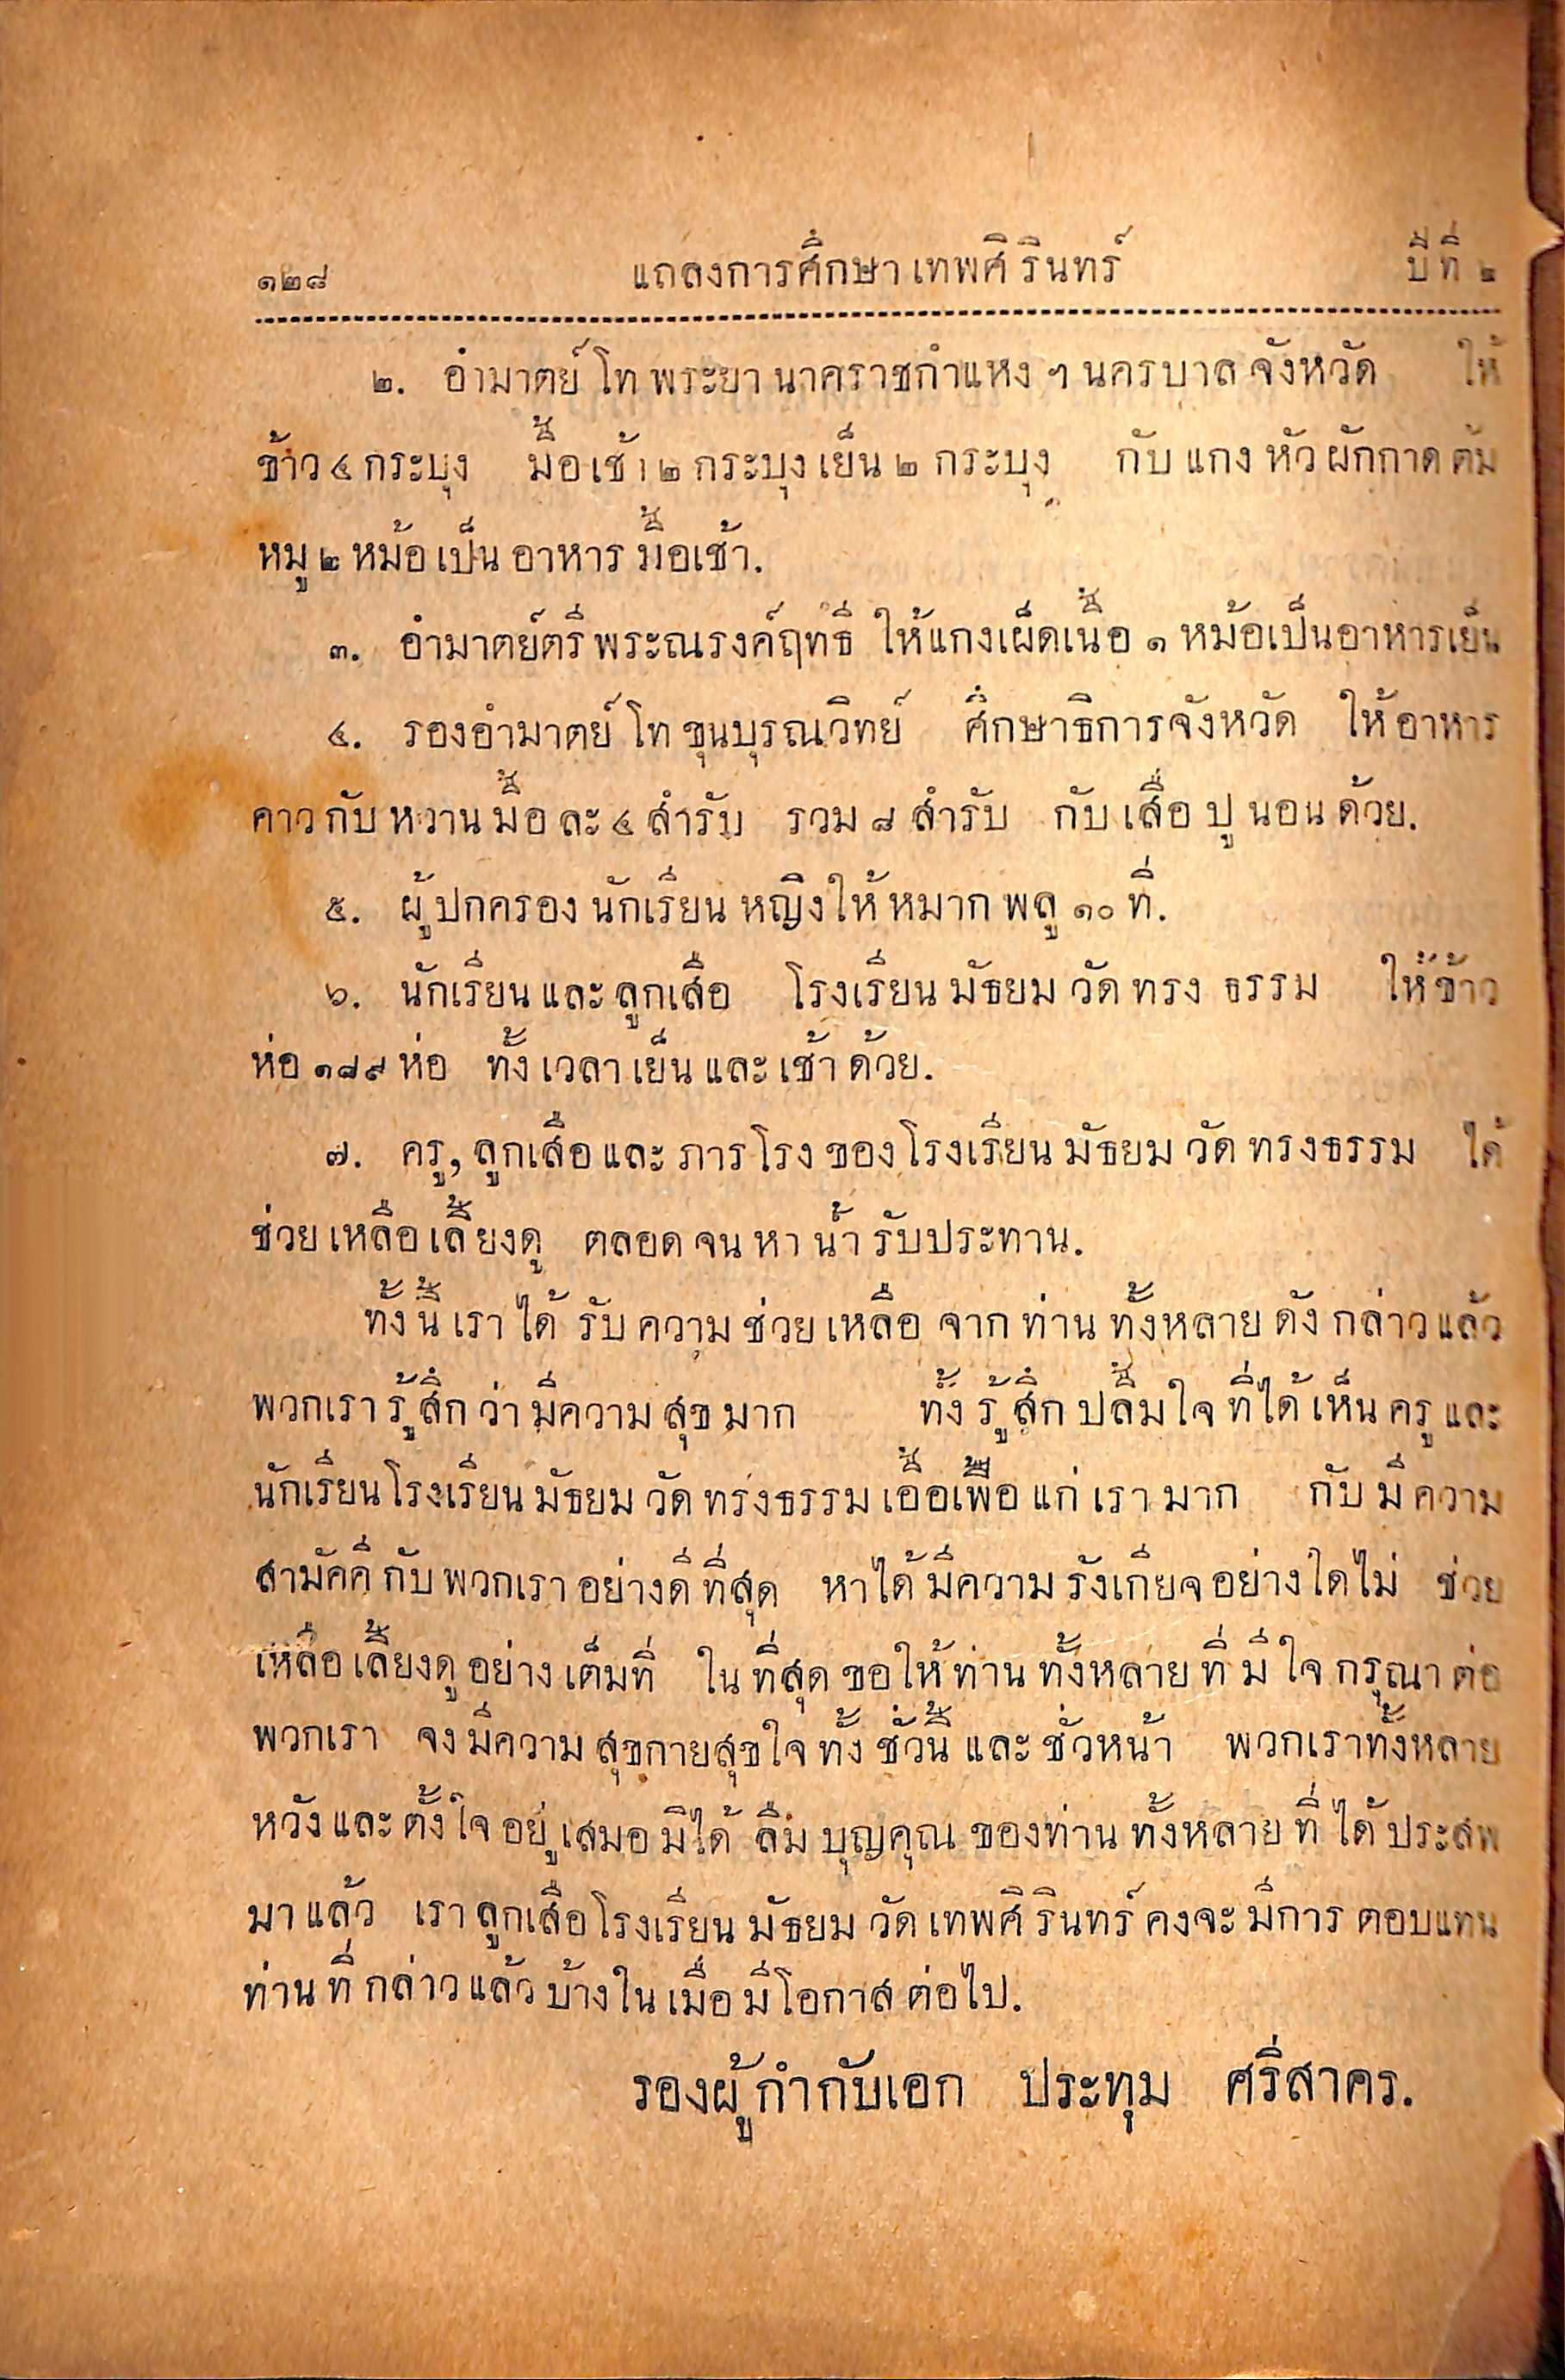 ๑๒๘ แถลงการศึกษาเทพศิรินทร์ ปีที่ ๒
๒. อำมาตย์โท พระยานาคราชกำแหง ฯ นครบาลจังหวัด ให้
ข้าว ๔ กระบุง มื้อเช้า ๒ กระบุง เย็น ๒ กระบุง กับแกงหัวผักกาดต้ม
หมู ๒ หม้อเป็นอาหารมื้อเช้า.
๓. อำมาตย์ตรีพระณรงค์ฤทธิ์ ให้แกงเผ็ดเนื้อ ๑ หม้อเป็นอาหารเย็น
๔. รองอำมาตย์โท ขุนบุรณวิทย์ ศึกษาธิการจังหวัด ให้อาหาร
คาวกับหวานมื้อละ ๔ สำรับ รวม ๘ สำรับ กับเสื่อปูนอนด้วย.
๕. ผู้ปกครองนักเรียนหญิงให้หมากพลู ๑๐ ที่.
๖. นักเรียนและลูกเสือ โรงเรียนมัธยมวัดทรงธรรม ให้ข้าว
ห่อ ๑๘๙ ห่อ ทั้งเวลาเย็นและเช้าด้วย.
๗. ครู, ลูกเสือและภารโรงของโรงเรียนมัธยมวัดทรงธรรม ได้
ช่วยเหลือเลี้ยงดู ตลอดจนหาน้ำรับประทาน.
ทั้งนี้เราได้รับความช่วยเหลือจากท่านทั้งหลายดังกล่าวแล้ว
พวกเรารู้สึกว่ามีความสุขมาก ทั้งรู้สึกปลื้มใจที่ได้เห็นครูและ
นักเรียนโรงเรียนมัธยมวัดทรงธรรมเอื้อเฟื้อแก่เรามาก กับมีความ
สามัคคีกับพวกเราอย่างดีที่สุด หาได้มีความรังเกียจอย่างใดไม่ ช่วย
เหลือเลี้ยงดูอย่างเต็มที่ ในที่สุดขอให้ท่านทั้งหลายที่มีใจกรุณาต่อ
พวกเรา จงมีความสุขกายสุขใจทั้งชั่วนี้และชั่วหน้า พวกเราทั้งหลาย
หวังและตั้งใจอยู่เสมอมิได้ลืมบุญคุณของท่านทั้งหลายที่ได้ประสพ
มาแล้ว เราลูกเสือโรงเรียนมัธยมวัดเทพศิรินทร์คงจะมีการตอบแทน
ท่านที่กล่าวแล้วบ้างในเมื่อมีโอกาสต่อไป.
รองผู้กำกับเอก ประทุม ศรีสาคร.